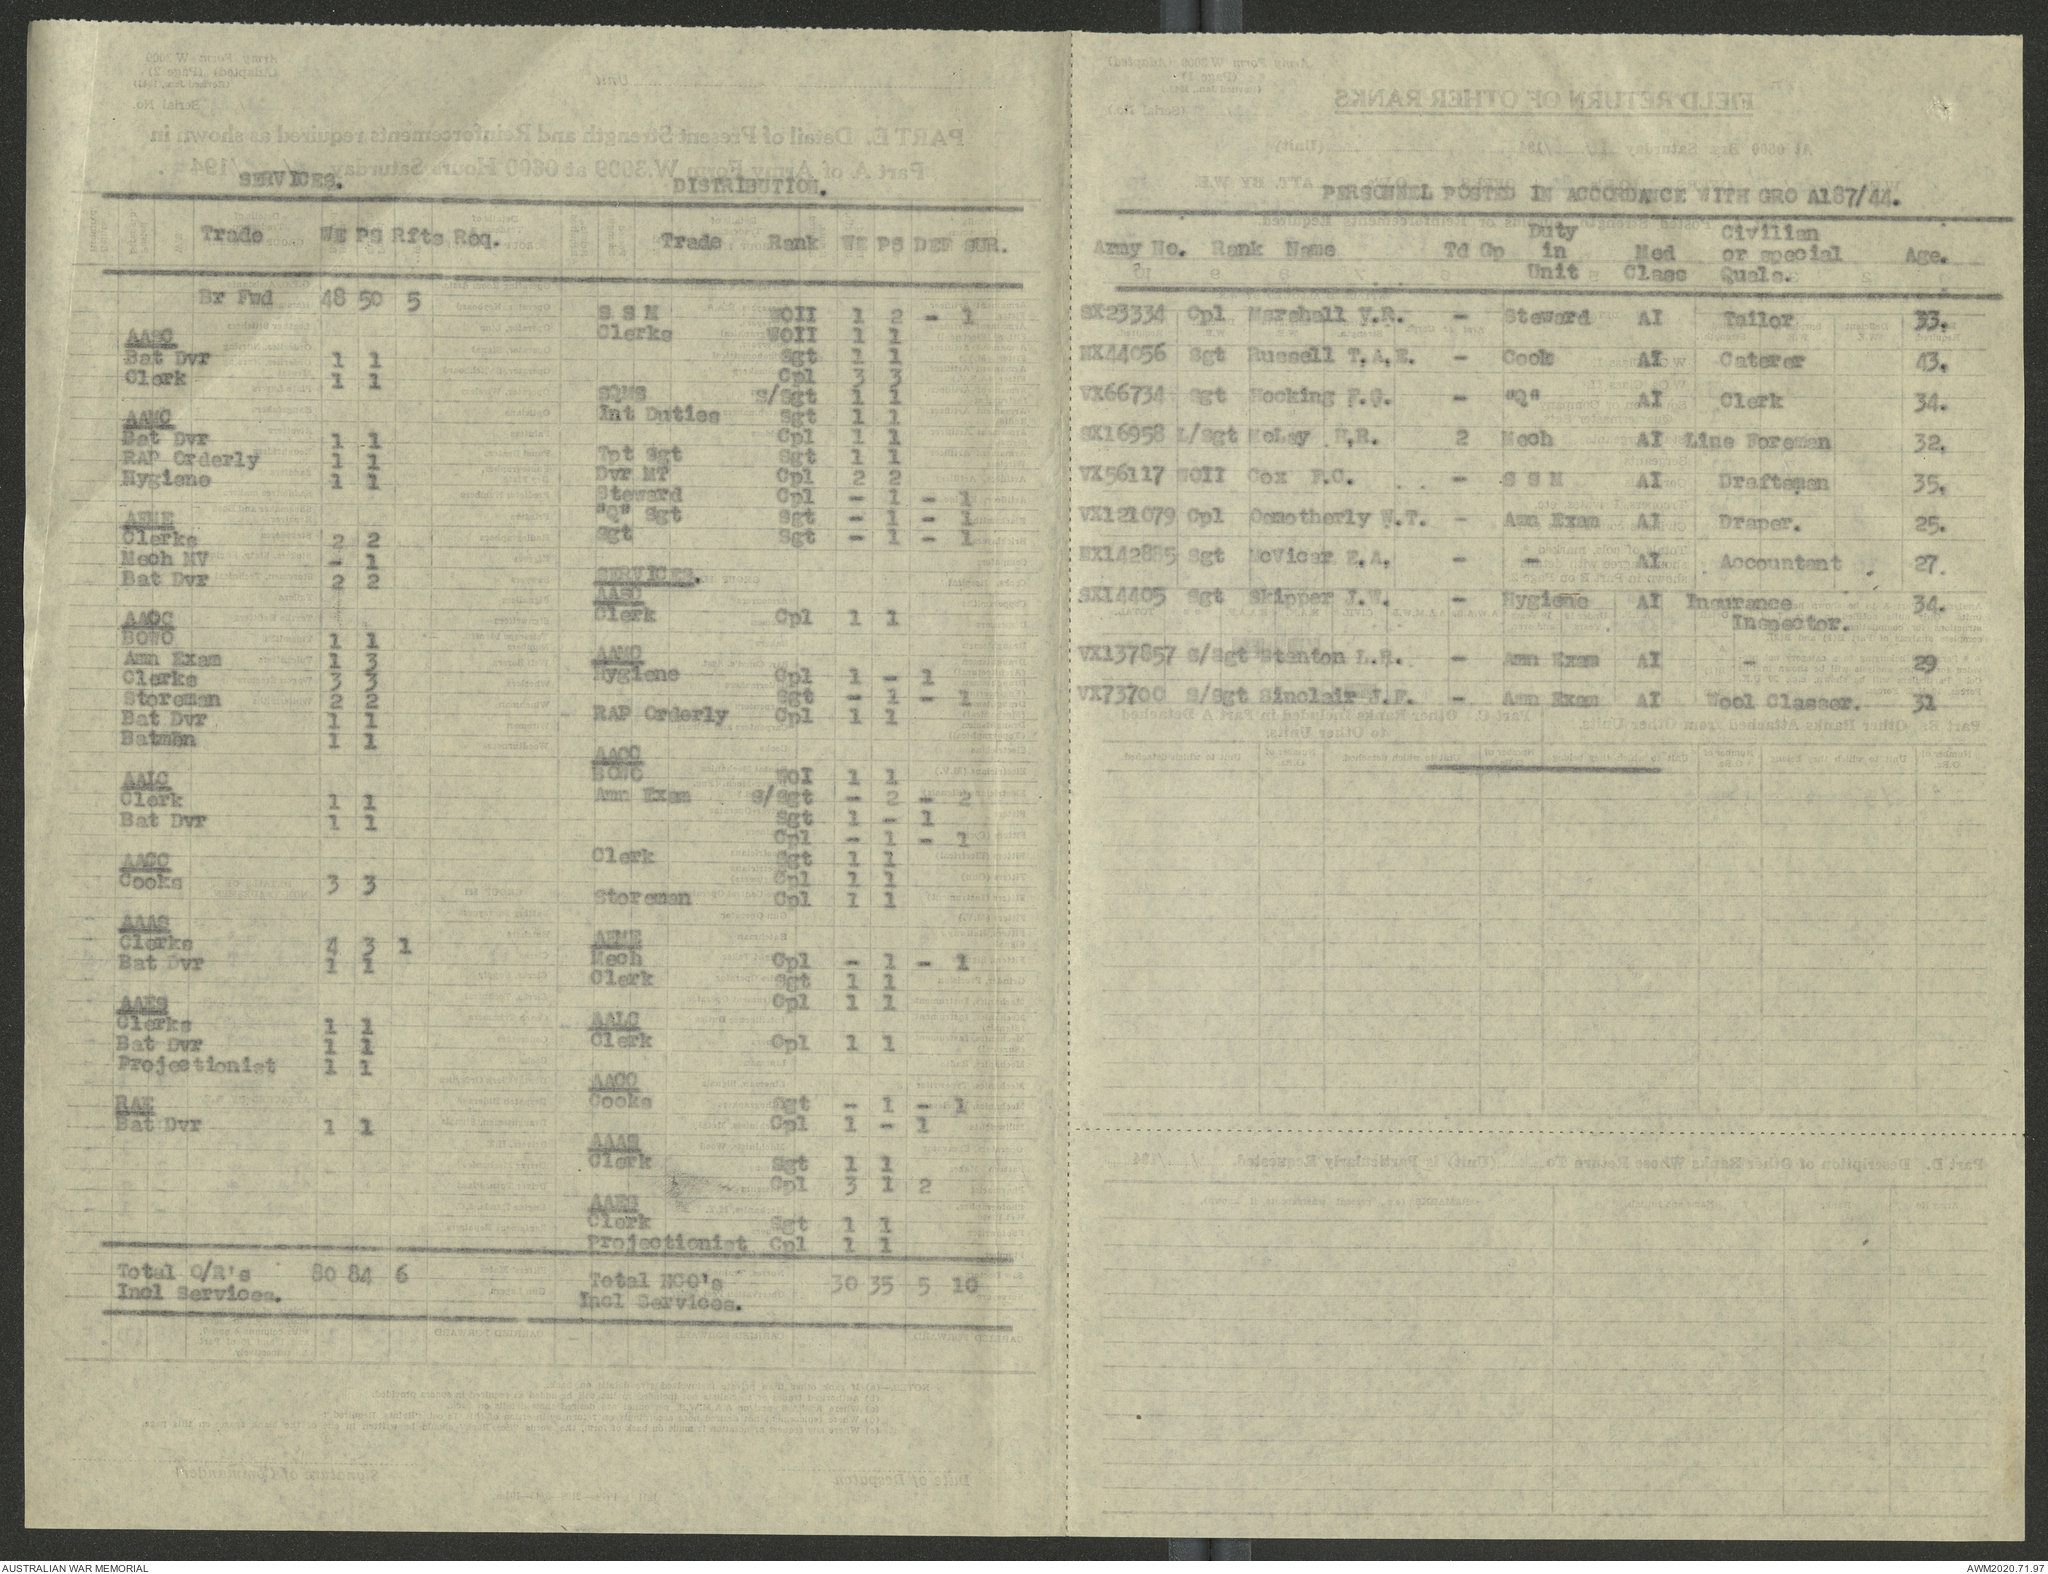 SERVICES.
Trade WE PS Rfts Req.
Br Fwd 48 50 5
AASC
Bat Dvr 1 1
Clerk 1 1
AAMC
Bat Dvr 1 1
RAP Orderly 1 1
Hygiene 1 1
AEME
Clerks 2 2
Mech MV - 1
Bat Dvr 2 2
AAOC
BOWO 1 1
Amn Exam 1 3
Clerks 3 3
Storeman 2 2
Bat Dvr 1 1
Batman 1 1
AALC
Clerk 1 1
Bat Dvr 1 1
AACC
Cooks 3 3
AAAS
Clerks 4 3 1
Bat Dvr 1 1
AAES
Clerks 1 1
Bat Dvr 1 1
Projectionist 1 1
RAE
Bat Dvr 1 1
Total O/R's 80 84 6
Incl Services.
DISTRIBUTION.
Trade Rank WE PS DEF SUR.
S S M WOII 1 2 - 1
Clerks WOII 1 1
Sgt 1 1
Cpl 3 3
SQMS S/Sgt 1 1
Int Duties Sgt 1 1
Cpl 1 1
Tpt Sgt Sgt 1 1
Dvr MT Cpl 2 2
Steward Cpl - 1 - 1
"Q" Sgt Sgt - 1 - 1
Sgt Sgt - 1 - 1
SERVICES.
AASC
Clerk Cpl 1 1
AAMC
Hygiene Cpl 1 - 1
Sgt - 1 - 1
RAP Orderly Cpl 1 1
AAOC
BOWO WOI 1 1
Amn Exam S/Sgt - 2 - 2
Sgt 1 - 1
Cpl - 1 - 1
Clerk Sgt 1 1
Cpl 1 1
Storeman Cpl 1 1
AEME
Mech Cpl - 1 - 1
Clerk Sgt 1 1
Cpl 1 1
AALC
Clerk Cpl 1 1
AACC
Cooks Sgt - 1 - 1
Cpl 1 - 1
AAAS
Clerk Sgt 1 1
Cpl 3 1 2
AAEC
Clerk Sgt 1 1
Projectionist Cpl 1 1
Total NCO's 30 35 5 10
Incl Services.
PERSONNEL POSTED IN ACCORDANCE WITH GRO A187/44.
Army No. Rank Name Td Gp Duty in Unit Med Class Civilian or special Quals. Age.
SX23334 Cpl Marshall V.R. - Steward AI Tailor 33.
NX44056 Sgt Russell T.A.E. - Cook AI Caterer 43.
VX66734 Sgt Hocking F.G. - "Q" AI Clerk 34.
SX16958 L/Sgt McLay H.R. 2 Mech AI Line Foreman 32.
VX56117 WOII Cox F.C. - S S M AI Draftsman 35.
VX121079 Cpl Osmotherly W.T. - Amn Exam AI Draper. 25.
NX142885 Sgt McVicar E.A. - - AI Accountant . 27.
SX14405 Sgt Skipper J.W. - Hygiene AI Insurance 34.
Inspector.
VX137857 S/Sgt Stanton L.R. - Amn Exam AI - 29
VX73700 S/Sgt Sinclair J.F. - Amn Exam AI Wool Classer. 31
AUSTRALIAN WAR MEMORIAL
AWM2020.71.97